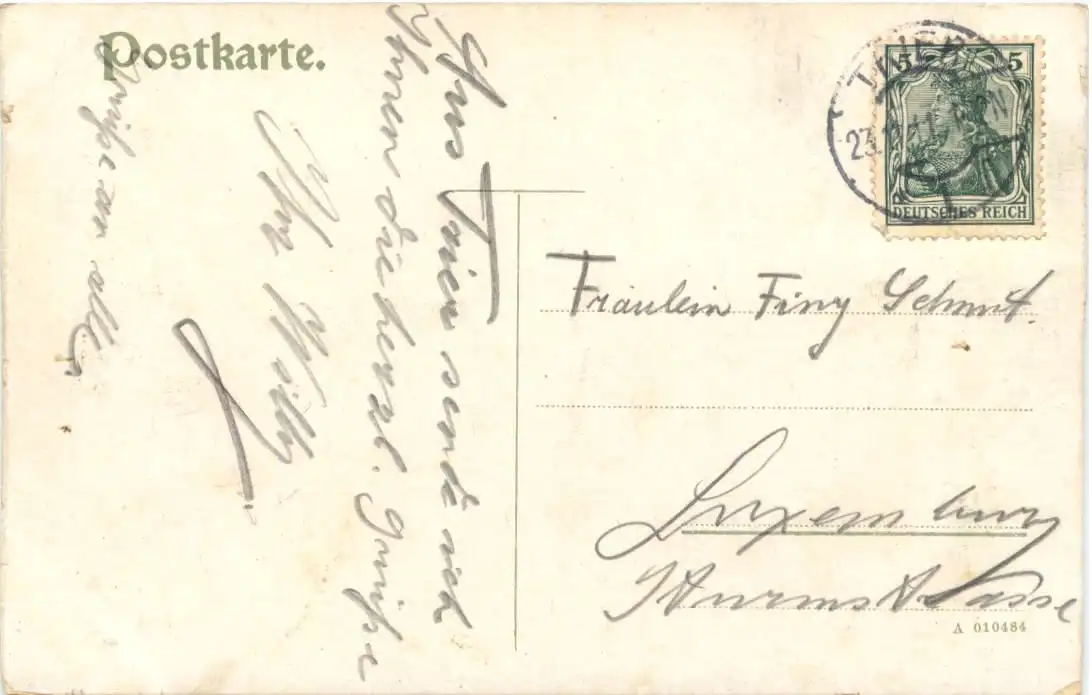 Postkarte.
Aus Trier sende ich
Ihnen die herzl. Grüße
Ihr Willy
Grüße an alle
TRIER
23.12.11.
5 5
DEUTSCHES REICH
Fräulein Finy Schmit.
Luxemburg
Sturmstrasse
A 010484